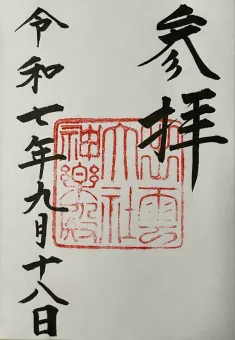 参拝
出雲
大社
神樂殿
令和七年九月十八日